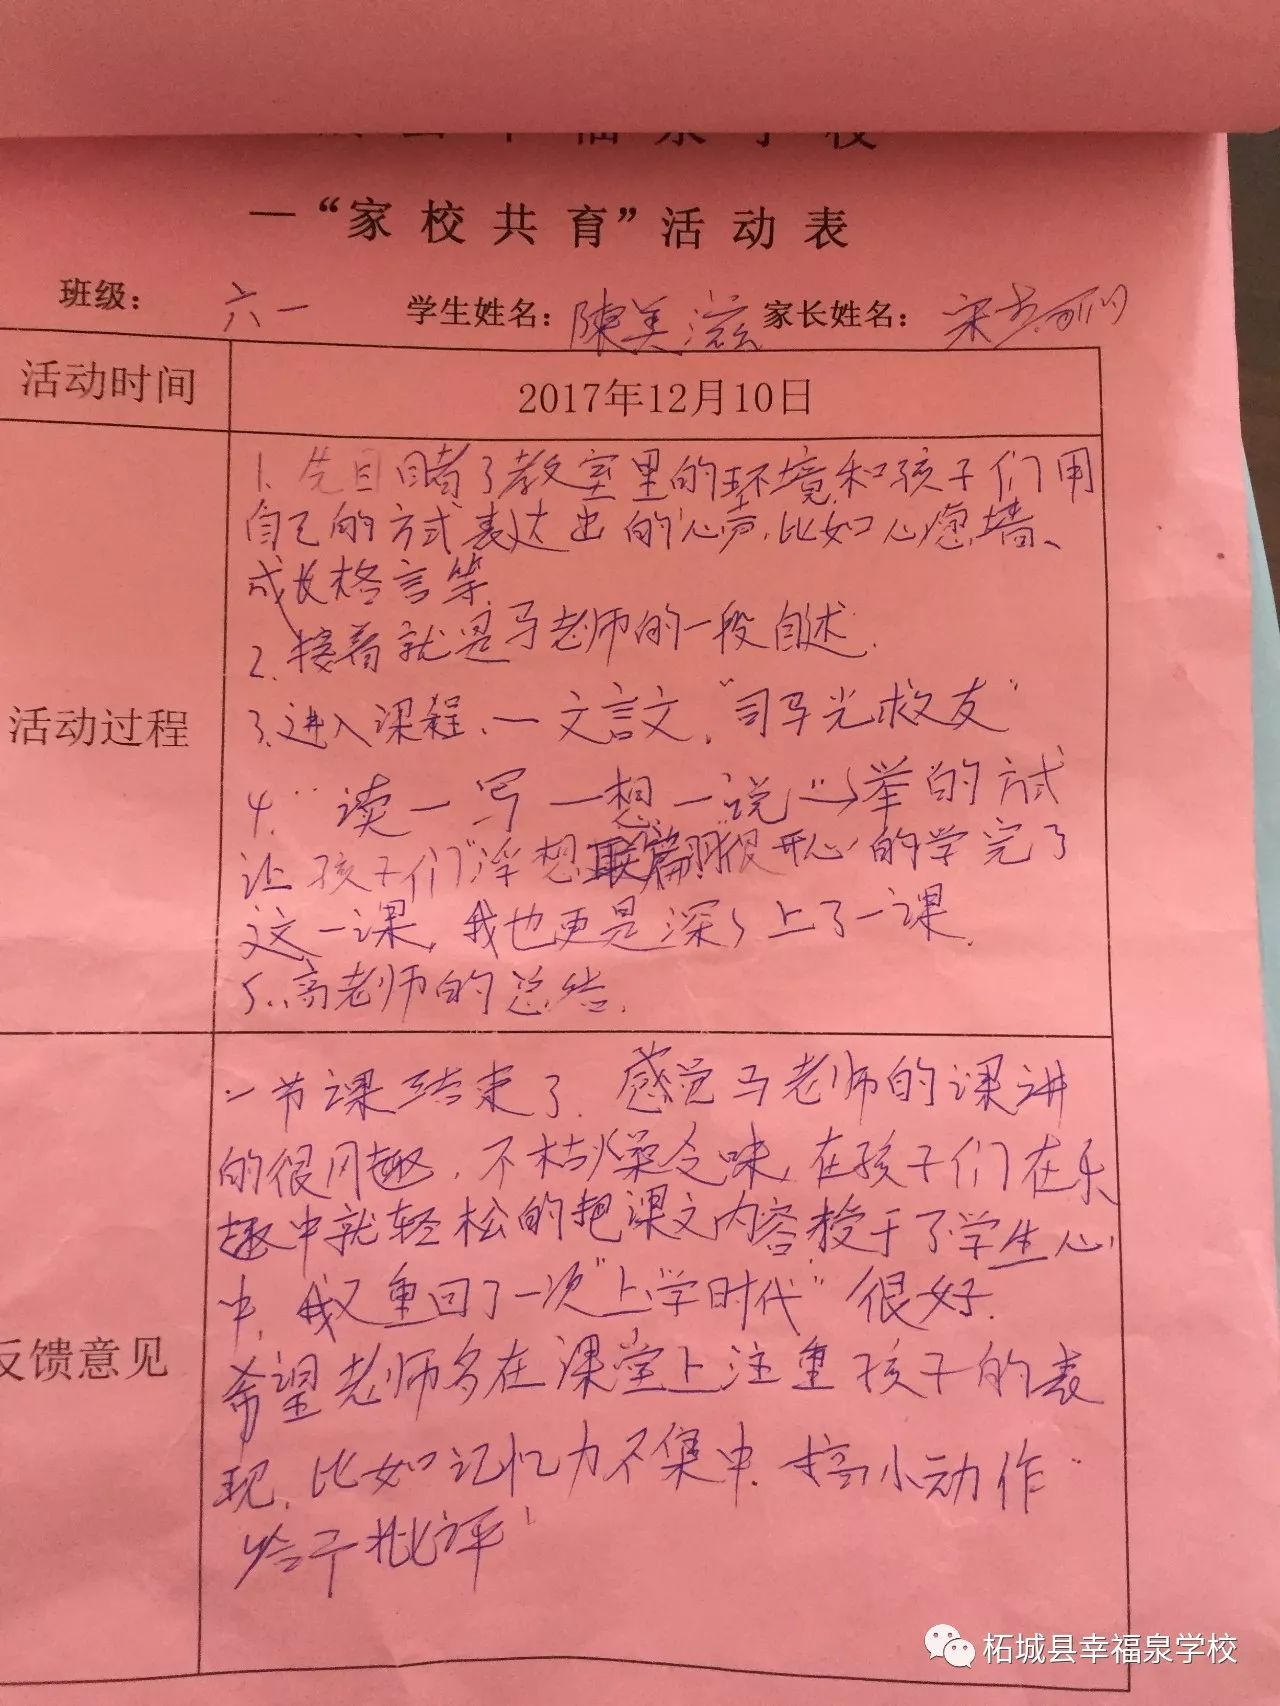 福泉学校
一“家校共育”活动表
班级： 六一 学生姓名：陳美滋 家长姓名：宋
活动时间
2017年12月10日
活动过程
1.先目睹了教室里的环境和孩子们用
自己的方式表达出的心声.比如心愿墙、
成长格言等.
2.接着就是马老师的一段自述.
3.进入课程、一文言文."司马光救友"
4."读一写一想一说"举的方式
让孩子们"浮想联翩"很开心的学完了
这一课,我也更是深深上了一课.
5.高老师的总结.
反馈意见
一节课结束了.感觉马老师的课讲
的很风趣.不枯燥乏味,在孩子们在乐
趣中就轻松的把课文内容授于了学生心
中.我又重回了一次"上学时代"很好.
希望老师多在课堂上注重孩子的表
现.比如记忆力不集中.搞小动作"
给予批评"
柘城县幸福泉学校